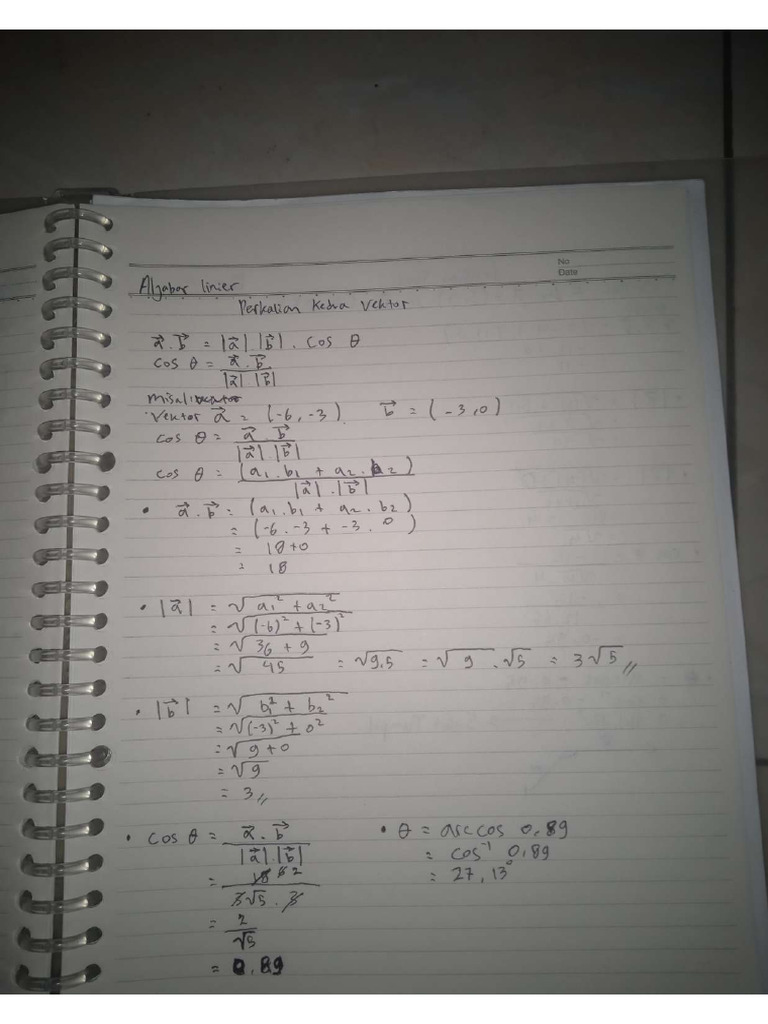 No
Date
Aljabar linier
Perkalian Kedua Vektor
a⃗ . b⃗ = |a⃗| |b⃗| . cos θ
cos θ = a⃗ . b⃗ / |a⃗| |b⃗|
Vektor a⃗ = (-6, -3) b⃗ = (-3,0)
cos θ = a⃗ . b⃗ / |a⃗| . |b⃗|
cos θ = (a₁ . b₁ + a₂ . b₂) / |a⃗| . |b⃗|
• a⃗ . b⃗ = (a₁ . b₁ + a₂ . b₂)
= (-6 . -3 + -3 . 0)
= 18+0
= 18
• |a⃗| = √a₁² + a₂²
= √(-6)² + (-3)²
= √36 + 9
= √45 = √9.5 = √9 . √5 = 3√5 //
• |b⃗| = √b₁² + b₂²
= √(-3)² + 0²
= √9+0
= √9
= 3 //
• cos θ = a⃗ . b⃗ / |a⃗| . |b⃗|
= 18 6 2 / 3√5 . 3
= 2 / √5
= 0.89
• θ = arc cos 0,89
= cos⁻¹ 0,89
= 27,13°